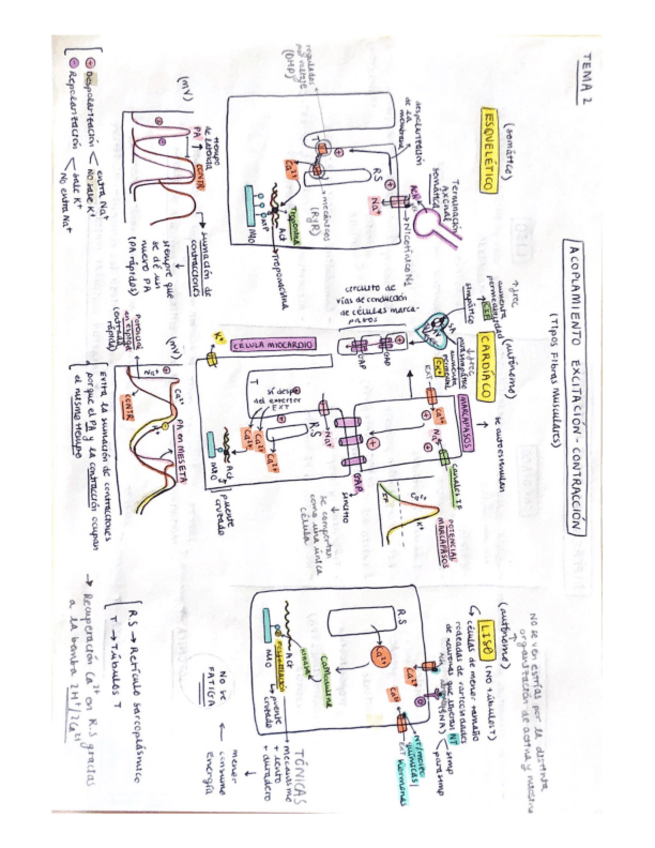 TEMA 2
ACOPLAMIENTO EXCITACIÓN - CONTRACCIÓN
(TIPOS FIBRAS MUSCULARES)
(somático)
ESQUELÉTICO
Terminación
Axonal
somática
Nicotínico N1
ACh
Na+
despolarización
de la
membrana
regulados
por voltaje
(DHP)
T
RS
Ca2+
mecánicos
(RyR)
Troponina
Act
Tropomiosina
MAO
(mV)
tiempo
de latencia
PA
CONTR
sumación de
contracciones
siempre que
se dé un
nuevo PA
(PA rápidos)
Despolarización
entra Na+
No sale K+
Repolarización
sale K+
No entra Na+
(autónomo)
CARDÍACO
↑ frec
aumenta
permeabilidad
simpático
SA
↓ frec
parasimpático
aumenta
EXT
Ca2+
Na+
MARCAPASOS
se autoestimulan
canales If
circuito de
vías de conducción
de células marca-
pasos
GAP
GAP
K+
CÉLULA MIOCARDIO
T
RS
Na+
sí desp
del exterior
EXT
Ca2+
Ca2+
Ca2+
Act
MAO
puente
cruzado
GAP
sincitio
se comportan
como una única
célula
Ca2+
K+
POTENCIAL
MARCAPASOS
(mV)
Potencial
en espiga
(rápida)
Na+
Ca2+
PA EN MESETA
CONTR
Evita la sumación de contracciones
porque el PA y la contracción ocupan
el mismo tiempo
No se ven estrías por la distinta
organización de actina y miosina
(autónomo)
LISO
(NO túbulos T)
células de menor tamaño
rodeadas de varicosidades
de neuronas que liberan NT
simp
parasimp
RS
Ca2+
Ca2+
Ca2+
EXT
químicas/
Hormonas
Calmodulina
Act
MAO
puente
cruzado
TÓNICAS
mecanismo
+ lento
+ duradero
menor
consumo
energía
NO SE
FATIGA
RS → Retículo sarcoplásmico
T → Túbulos T
→ Recuperación Ca2+ en RS gracias
a la bomba 2H+/2Ca2+